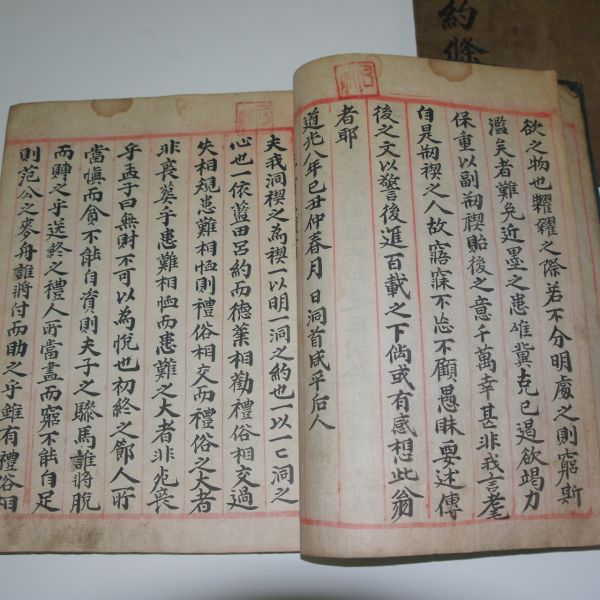 欲之物也糶糴之際若不分明處之則窮斯
濫矣者難免近墨之患唯冀克已遏欲竭力
保重以副刱稧貽後之意千萬幸甚非我言耄
自是刱稧之人故寤寐不忘不顧愚昧耍述傳
後之文以警後進百載之下倘或有感想此翁
者耶
道光八年已丑仲春月 日洞首咸平后人
夫我洞稧之為稧一以明一洞之約也一以一亡洞之
心也一依藍田呂約而德業相勸禮俗相交過
失相規患難相恤則禮俗相交而禮俗之大者
非喪葬乎患難相恤而患難之大者非死喪
乎孟子曰無財不可以為悅也初終之節人所
當愼而貪不能自資則夫子之驂馬誰將脫
而賻之乎送終之禮人所當盡而窮不能自足
則范公之麥舟誰將付而助之乎雖有禮俗相
約條